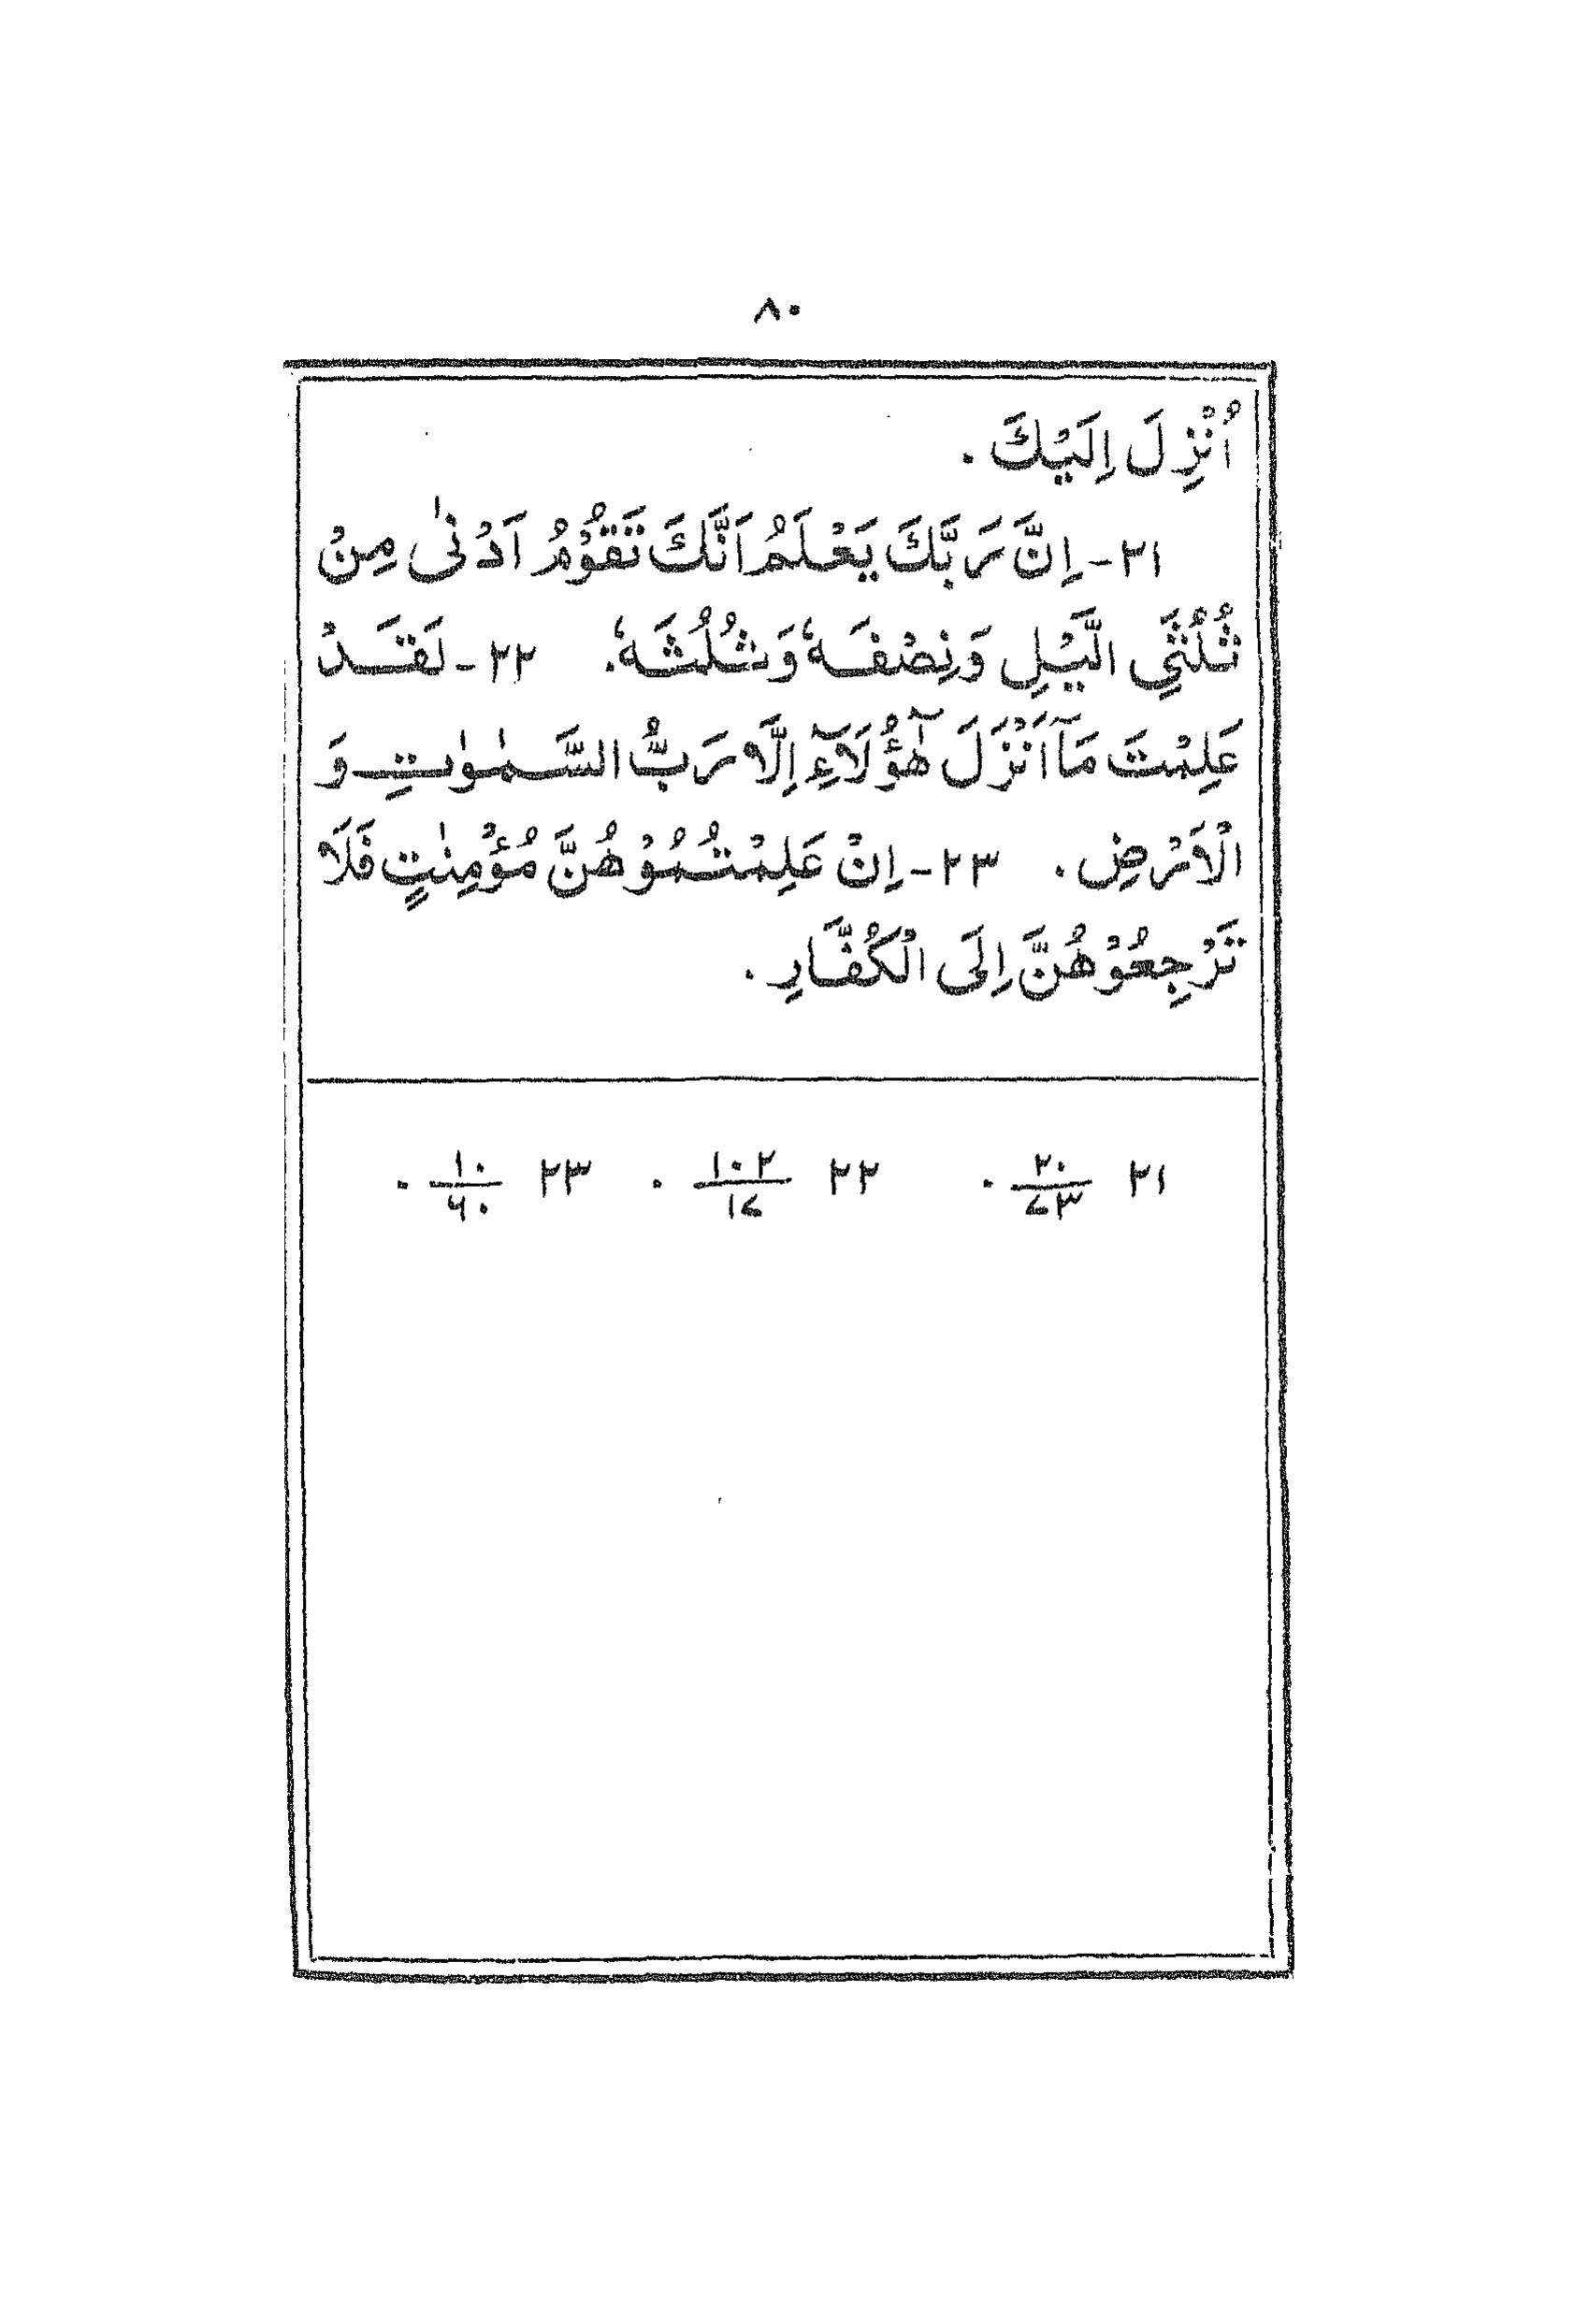 ٨٠
اُنْزِلَ اِلَيْكَ .
٢١- اِنَّ رَبَّكَ يَعْلَمُ اَنَّكَ تَقُوْمُ اَدْنٰى مِنْ
ثُلُثَيِ الَّيْلِ وَنِصْفَهٗ وَثُلُثَهٗ. ٢٢- لَقَدْ
عَلِمْتَ مَآ اَنْزَلَ هٰٓؤُلَآءِ اِلَّا رَبُّ السَّمٰوٰتِ وَ
الْاَرْضِ . ٢٣- اِنْ عَلِمْتُمُوْهُنَّ مُؤْمِنٰتٍ فَلَا
تَرْجِعُوْهُنَّ اِلَى الْكُفَّارِ .
٢١ ٢٠/٧٣ . ٢٢ ١٠٢/١٧ . ٢٣ ١٠/٦٠ .